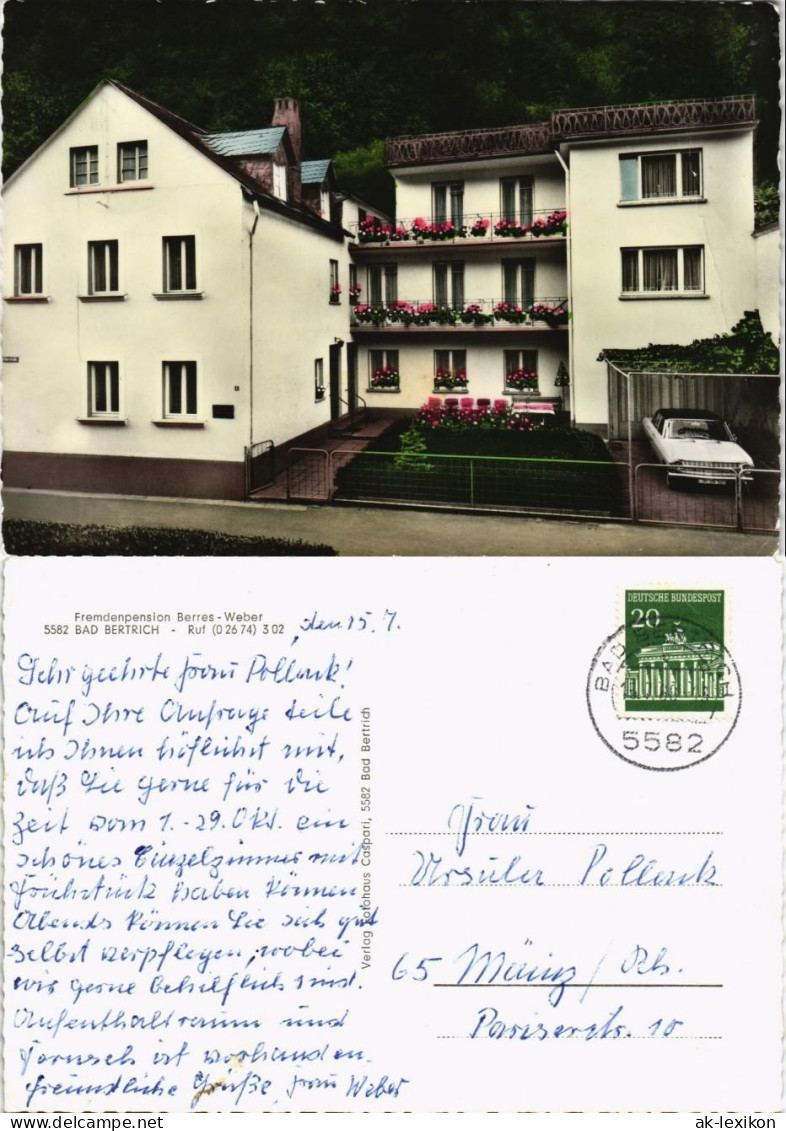 Fremdenpension Berres-Weber
5582 BAD BERTRICH - Ruf (0 26 74) 3 02
, den 15. 7.
Sehr geehrte Frau Pollack!
Auf Ihre Anfrage teile
ich Ihnen höflichst mit,
daß Sie gerne für die
Zeit vom 1. - 29. Okt. ein
schönes Einzelzimmer mit
Frühstück haben können
Abends können Sie sich gut
selbst verpflegen, wobei
wir gerne behilflich sind.
Aufenthaltsraum und
Fernseh ist vorhanden.
freundliche Grüße, Frau Weber
Verlag Fotohaus Caspari, 5582 Bad Bertrich
DEUTSCHE BUNDESPOST
20
BAD BERTRICH
5582
Frau
Ursula Pollack
65 Mainz/Rh.
Pariserstr. 10
ak-ansichtskarten
ak-lexikon